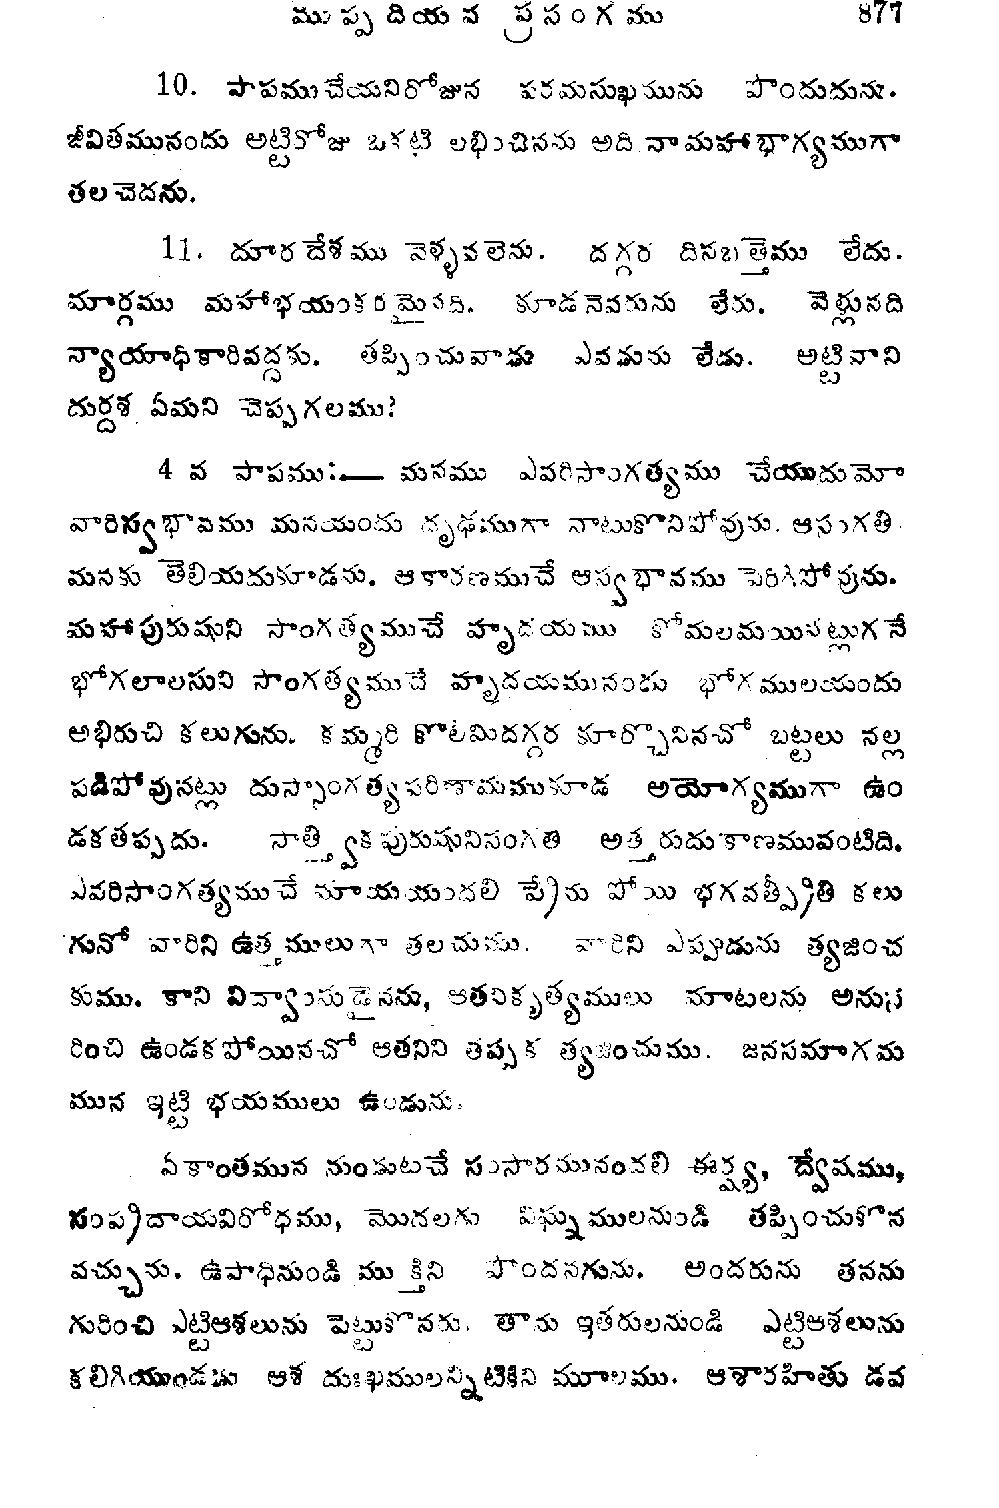 ముప్పదియవ ప్రసంగము 877
10. పాపముచేయనిరోజున పరమసుఖమును పొందుదును.
జీవితమునందు అట్టిరోజు ఒకటి లభించినను అది నామహాభాగ్యముగా
తలచెదను.
11. దూరదేశము వెళ్ళవలెను. దగ్గర దినబత్తెము లేదు.
మార్గము మహాభయంకరమైనది. కూడనెవరును లేరు. వెళ్లునది
న్యాయాధికారివద్దకు. తప్పించువాడు ఎవడును లేడు. అట్టివాని
దుర్దశ ఏమని చెప్పగలము?
4 వ పాపము:— మనము ఎవరిసాంగత్యము చేయుదుమో
వారిస్వభావము మనయందు దృఢముగా నాటుకొనిపోవును. ఆసంగతి
మనకు తెలియదుకూడను. ఆకారణముచే ఆస్వభావము పెరిగిపోవును.
మహాపురుషుని సాంగత్యముచే హృదయము కోమలమయినట్లుగనే
భోగలాలసుని సాంగత్యముచే హృదయమునందు భోగములయందు
అభిరుచి కలుగును. కమ్మరి కొలిమిదగ్గర కూర్చొనినచో బట్టలు నల్ల
పడిపోవునట్లు దుస్సాంగత్యపరిణామముకూడ అయోగ్యముగా ఉం
డకతప్పదు. సాత్త్వికపురుషునిసంగతి అత్తరుదుకాణమువంటిది.
ఎవరిసాంగత్యముచే మాయయందలి ప్రేమ పోయి భగవత్ప్రీతి కలు
గునో వారిని ఉత్తములుగా తలచుము. వారిని ఎప్పుడును త్యజించ
కుము. కాని విద్వాంసుడైనను, ఆతనికృత్యములు మాటలను అనుస
రించి ఉండకపోయినచో ఆతనిని తప్పక త్యజించుము. జనసమాగమ
మున ఇట్టి భయములు ఉండును.
ఏకాంతమున నుండుటచే సంసారమునందలి ఈర్ష్య, ద్వేషము,
సంప్రదాయవిరోధము, మొదలగు విఘ్నములనుండి తప్పించుకొన
వచ్చును. ఉపాధినుండి ముక్తిని పొందనగును. అందరును తనను
గురించి ఎట్టిఆశలును పెట్టుకొనరు. తాను ఇతరులనుండి ఎట్టిఆశలును
కలిగియుండడు ఆశ దుఃఖములన్నిటికిని మూలము. ఆశారహితు డవ